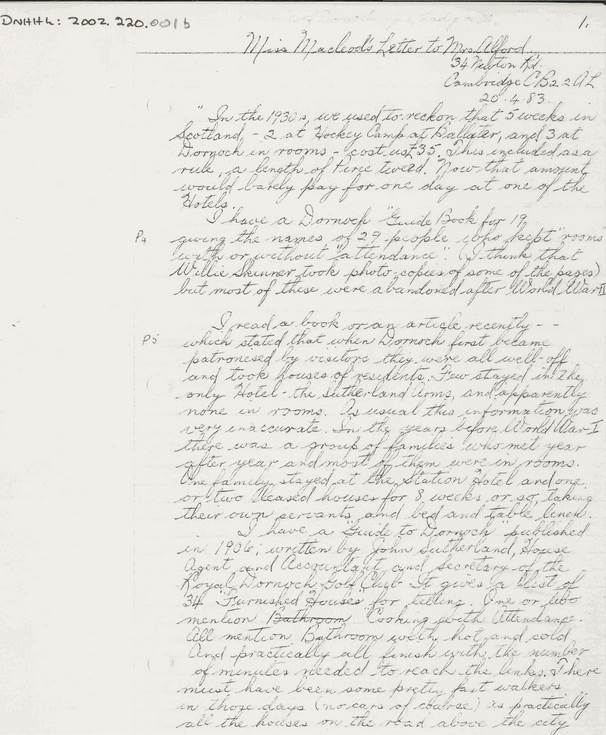 DNHHL: 2002.220.001b
1.
Miss Macleod's Letter to Mrs Alford
34 Newton Rd.
Cambridge CB2 2AL
20.4.83.
"In the 1930s, we used to reckon that 5 weeks in
Scotland, - 2 at Hockey Camp at Ballater, and 3 at
Dornoch in rooms - cost us £35. This included as a
rule, a length of Pirce tweed. Now that amount
would barely pay for one day at one of the
Hotels."
P4
I have a Dornoch "Guide Book for 19
giving the names of 29 people who kept "rooms"
with or without "attendance". (I think that
Willie Skinner took photo copies of some of the pages)
but most of these were abandoned after World War II
P5
I read a book or an article recently - -
which stated that when Dornoch first became
patronised by visitors they were all well-off
and took houses of residents. Few stayed in the
only Hotel - the Sutherland Arms, and apparently
none in rooms. As usual this information was
very inaccurate. In the years before World War I
there was a group of families who met year
after year and most of them were in rooms.
One family stayed at the Station Hotel and one
or two leased houses for 8 weeks or so, taking
their own servants and bed and table linen.
I have a "Guide to Dornoch" published
in 1906, written by John Sutherland, House
Agent and Accountant and secretary of the
Royal Dornoch Golf Club. It gives a list of
34 "Furnished Houses" for letting. One or two
mention Bathroom Cooking with Attendance.
All mention Bathroom with hot and cold
And practically all finish with the number
of minutes needed to reach the links. There
must have been some pretty fast walkers
in those days (no cars of course) as practically
all the houses on the road above the city